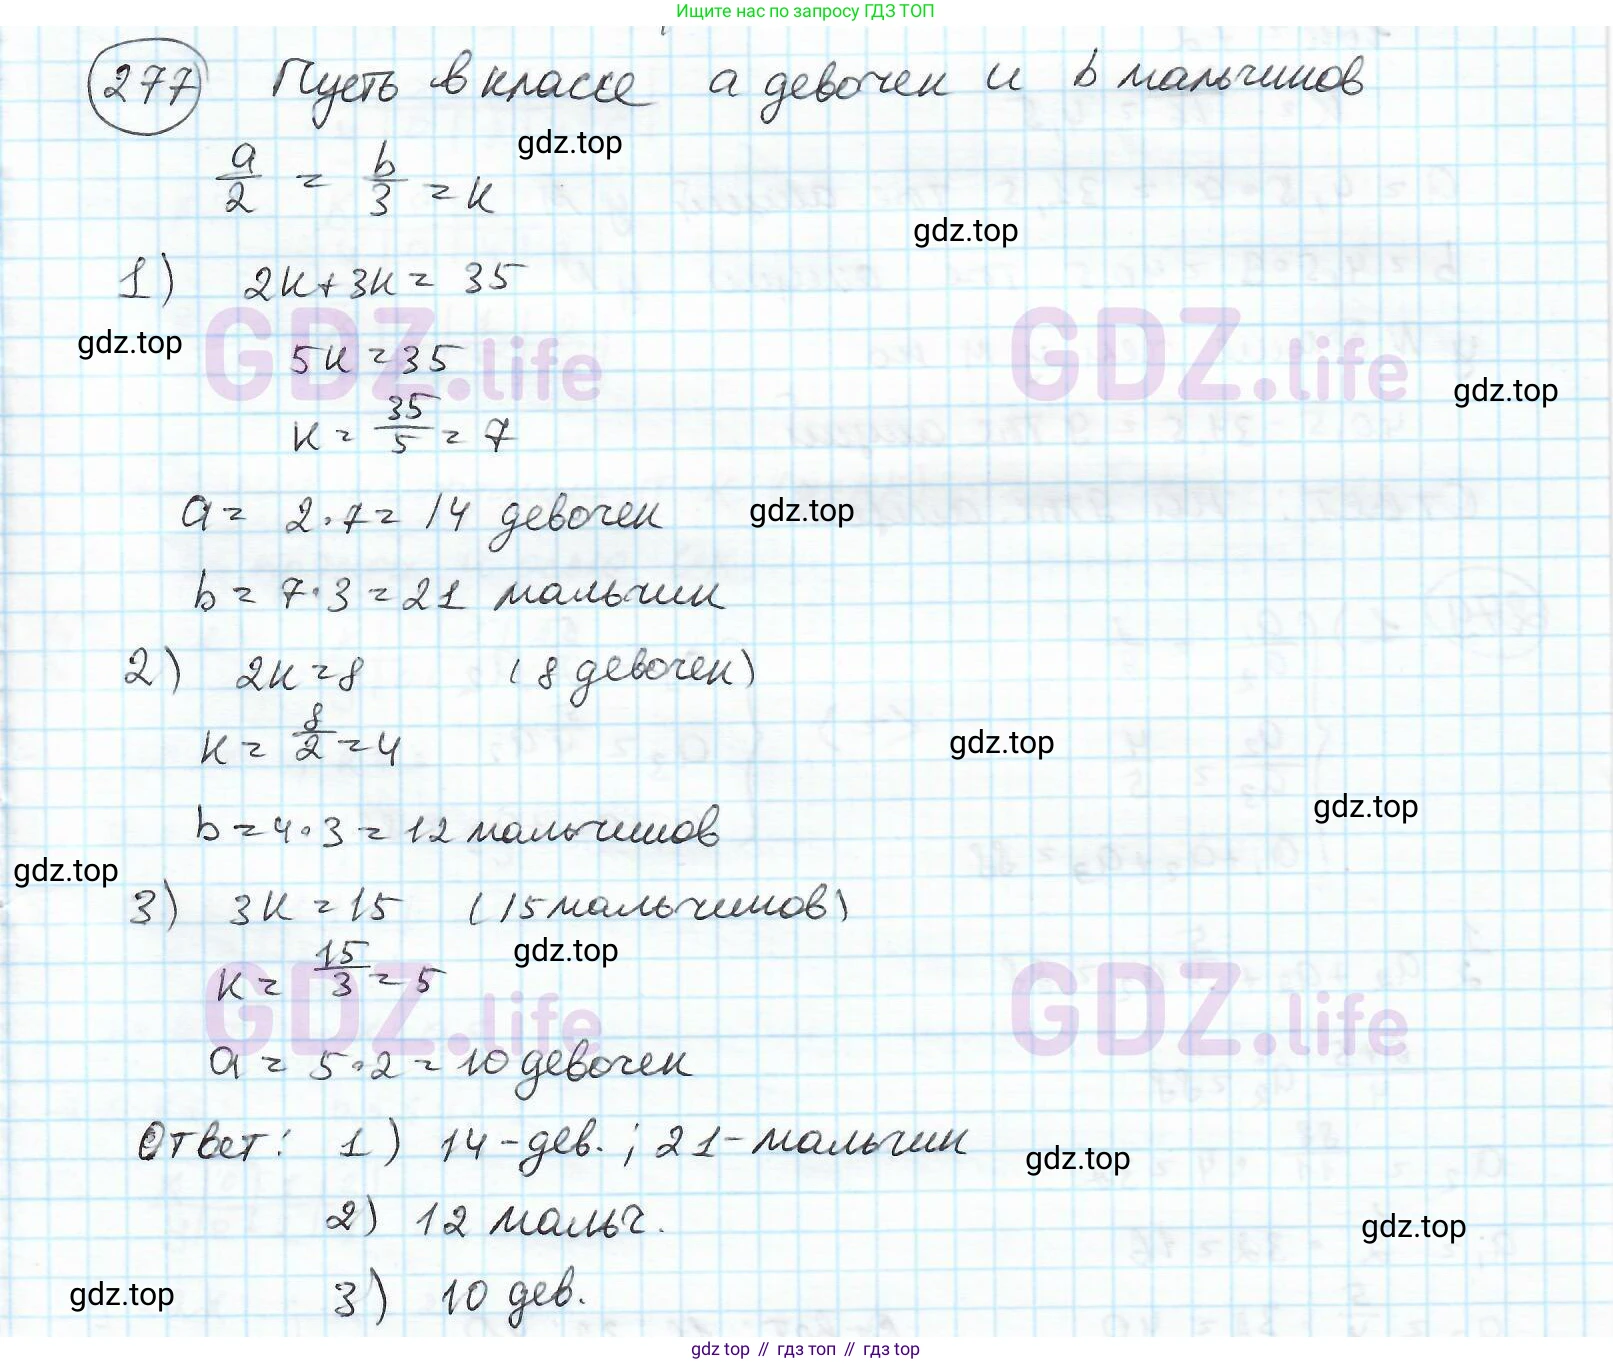 Ищите нас по запросу ГДЗ ТОП
277 Пусть в классе a девочек и b мальчиков
gdz.top
a/2 = b/3 = к
gdz.top
1) 2к+3к= 35
gdz.top
GDZ.life GDZ.life
5к=35
gdz.top
к= 35/5 = 7
a= 2·7= 14 девочек
gdz.top
b= 7·3=21 мальчик
2) 2к=8 (8 девочек)
к= 8/2 =4
gdz.top
gdz.top
b=4·3=12 мальчиков
gdz.top
3) 3к=15 (15 мальчиков)
gdz.top
к= 15/3 = 5
GDZ.life GDZ.life
a= 5·2=10 девочек
Ответ: 1) 14-дев.; 21-мальчик
gdz.top
2) 12 мальч.
gdz.top
gdz.top
3) 10 дев.
gdz.top // гдз топ // gdz.top